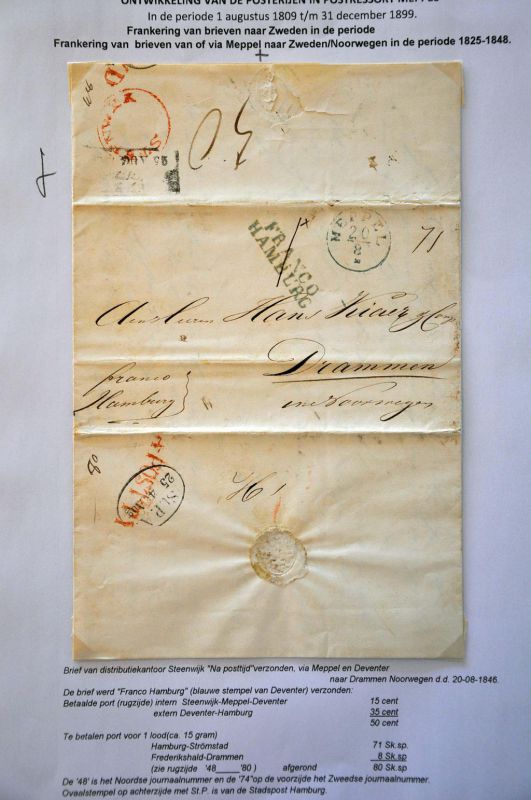 ONTWIKKELING VAN DE POSTERIJEN IN POSTRESSORT MEPPEL
In de periode 1 augustus 1809 t/m 31 december 1899.
Frankering van brieven naar Zweden in de periode
Frankering van brieven van of via Meppel naar Zweden/Noorwegen in de periode 1825-1848.
25 AUG
FRANCO
HAMBURG
MEPPEL
20
71
Hans Kiær
Drammen
franco
Hamburg
in Noorwegen
80
St.P.A
25 AUG
Brief van distributiekantoor Steenwijk "Na posttijd"verzonden, via Meppel en Deventer
naar Drammen Noorwegen d.d. 20-08-1846.
De brief werd "Franco Hamburg" (blauwe stempel van Deventer) verzonden:
Betaalde port (rugzijde) intern Steenwijk-Meppel-Deventer 15 cent
extern Deventer-Hamburg 35 cent
50 cent
Te betalen port voor 1 lood(ca. 15 gram)
Hamburg-Strömstad 71 Sk.sp.
Frederikshald-Drammen 8 Sk.sp
(zie rugzijde '48____'80 ) afgerond 80 Sk.sp
De '48' is het Noordse journaalnummer en de '74"op de voorzijde het Zweedse journaalnummer.
Ovaalstempel op achterzijde met St.P. is van de Stadspost Hamburg.